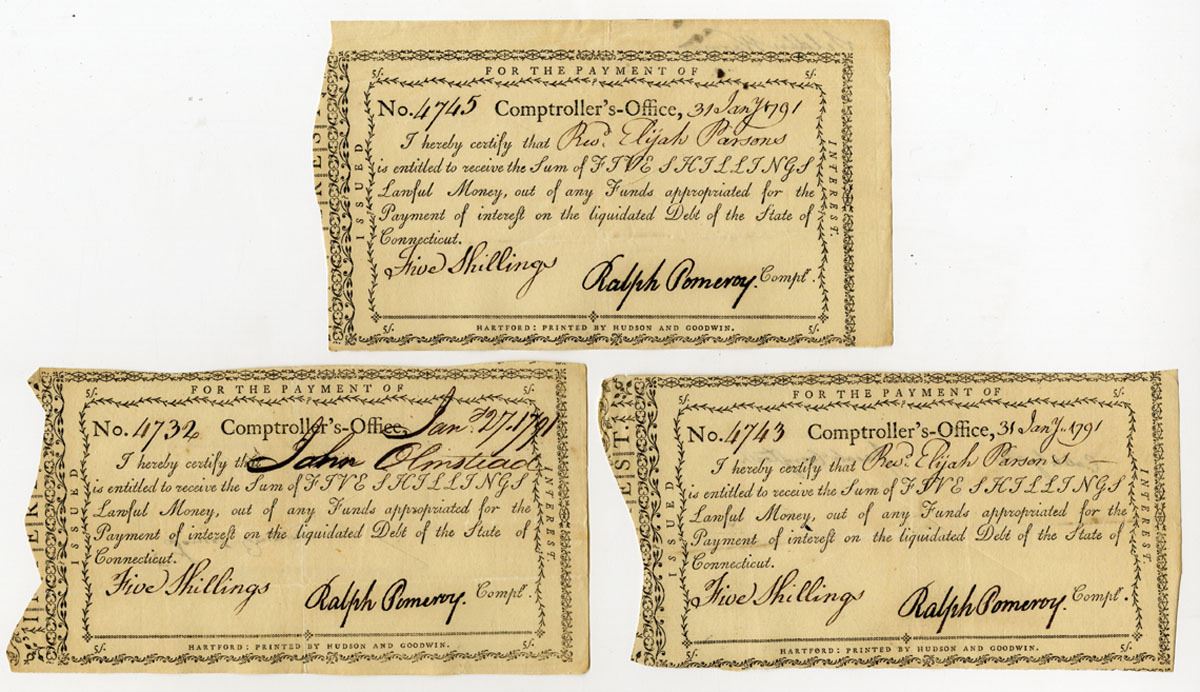 5/. FOR THE PAYMENT OF 5/.
No. 4745 Comptroller's-Office, 31 Jany 1791
I hereby certify that Revd. Elijah Parsons
is entitled to receive the Sum of FIVE SHILLINGS
Lawful Money, out of any Funds appropriated for the
Payment of intereſt on the liquidated Debt of the State of
Connecticut.
Five Shillings
Ralph Pomeroy. Complr.
5/. HARTFORD: PRINTED BY HUDSON AND GOODWIN. 5/.
ISSUED
INTEREST.
5/. FOR THE PAYMENT OF 5/.
No. 4732 Comptroller's-Office, Jany. 27. 1791
I hereby certify that John Olmstead
is entitled to receive the Sum of FIVE SHILLINGS
Lawful Money, out of any Funds appropriated for the
Payment of intereſt on the liquidated Debt of the State of
Connecticut.
Five Shillings
Ralph Pomeroy. Complr.
5/. HARTFORD: PRINTED BY HUDSON AND GOODWIN. 5/.
ISSUED
INTEREST.
5/. FOR THE PAYMENT OF 5/.
No. 4743 Comptroller's-Office, 31 Jany. 1791
I hereby certify that Revd. Elijah Parsons
is entitled to receive the Sum of FIVE SHILLINGS
Lawful Money, out of any Funds appropriated for the
Payment of intereſt on the liquidated Debt of the State of
Connecticut.
Five Shillings
Ralph Pomeroy. Complr.
5/. HARTFORD: PRINTED BY HUDSON AND GOODWIN. 5/.
ISSUED
INTEREST.